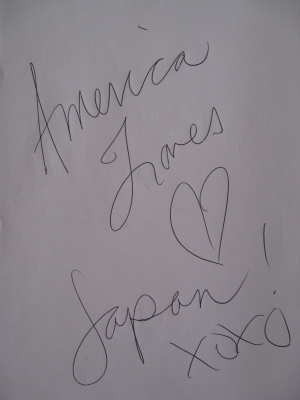 America
Loves
♡
Japan!
xoxo